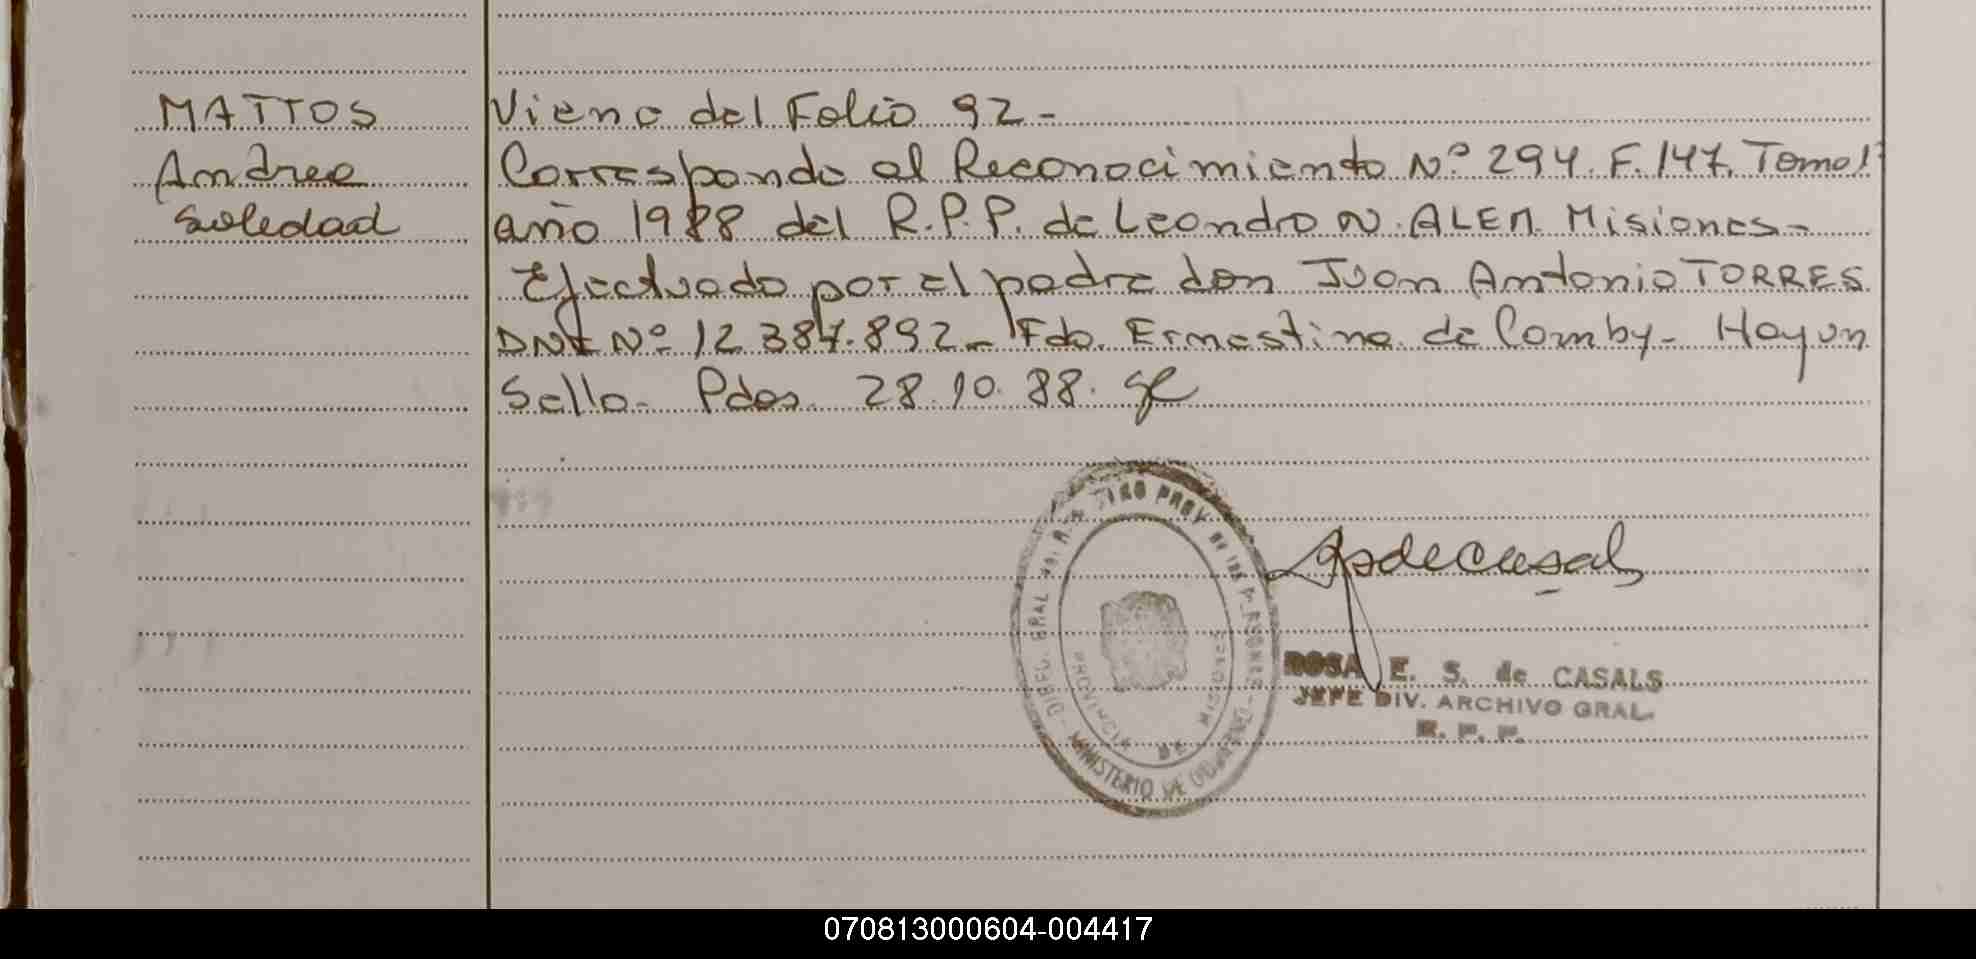 MATTOS
Andrea
Soledad
Viene del Folio 92-
Corresponde al Reconocimiento Nº 294. F. 147. Tomo 1º
año 1988 del R.P.P. de Leandro N. ALEM. Misiones-
Efectuado por el padre don Juan Antonio TORRES
DNI Nº 12.387.892- Fdo. Ernestina de Comby- Hay un
Sello- Pdas. 28.10.88.
DIREC. GRAL DEL REGISTRO PROV. DE LAS PERSONAS - MINISTERIO DE GOBIERNO
PROVINCIA DE MISIONES
ROSA E. S. de CASALS
JEFE DIV. ARCHIVO GRAL.
R. P. P.
070813000604-004417